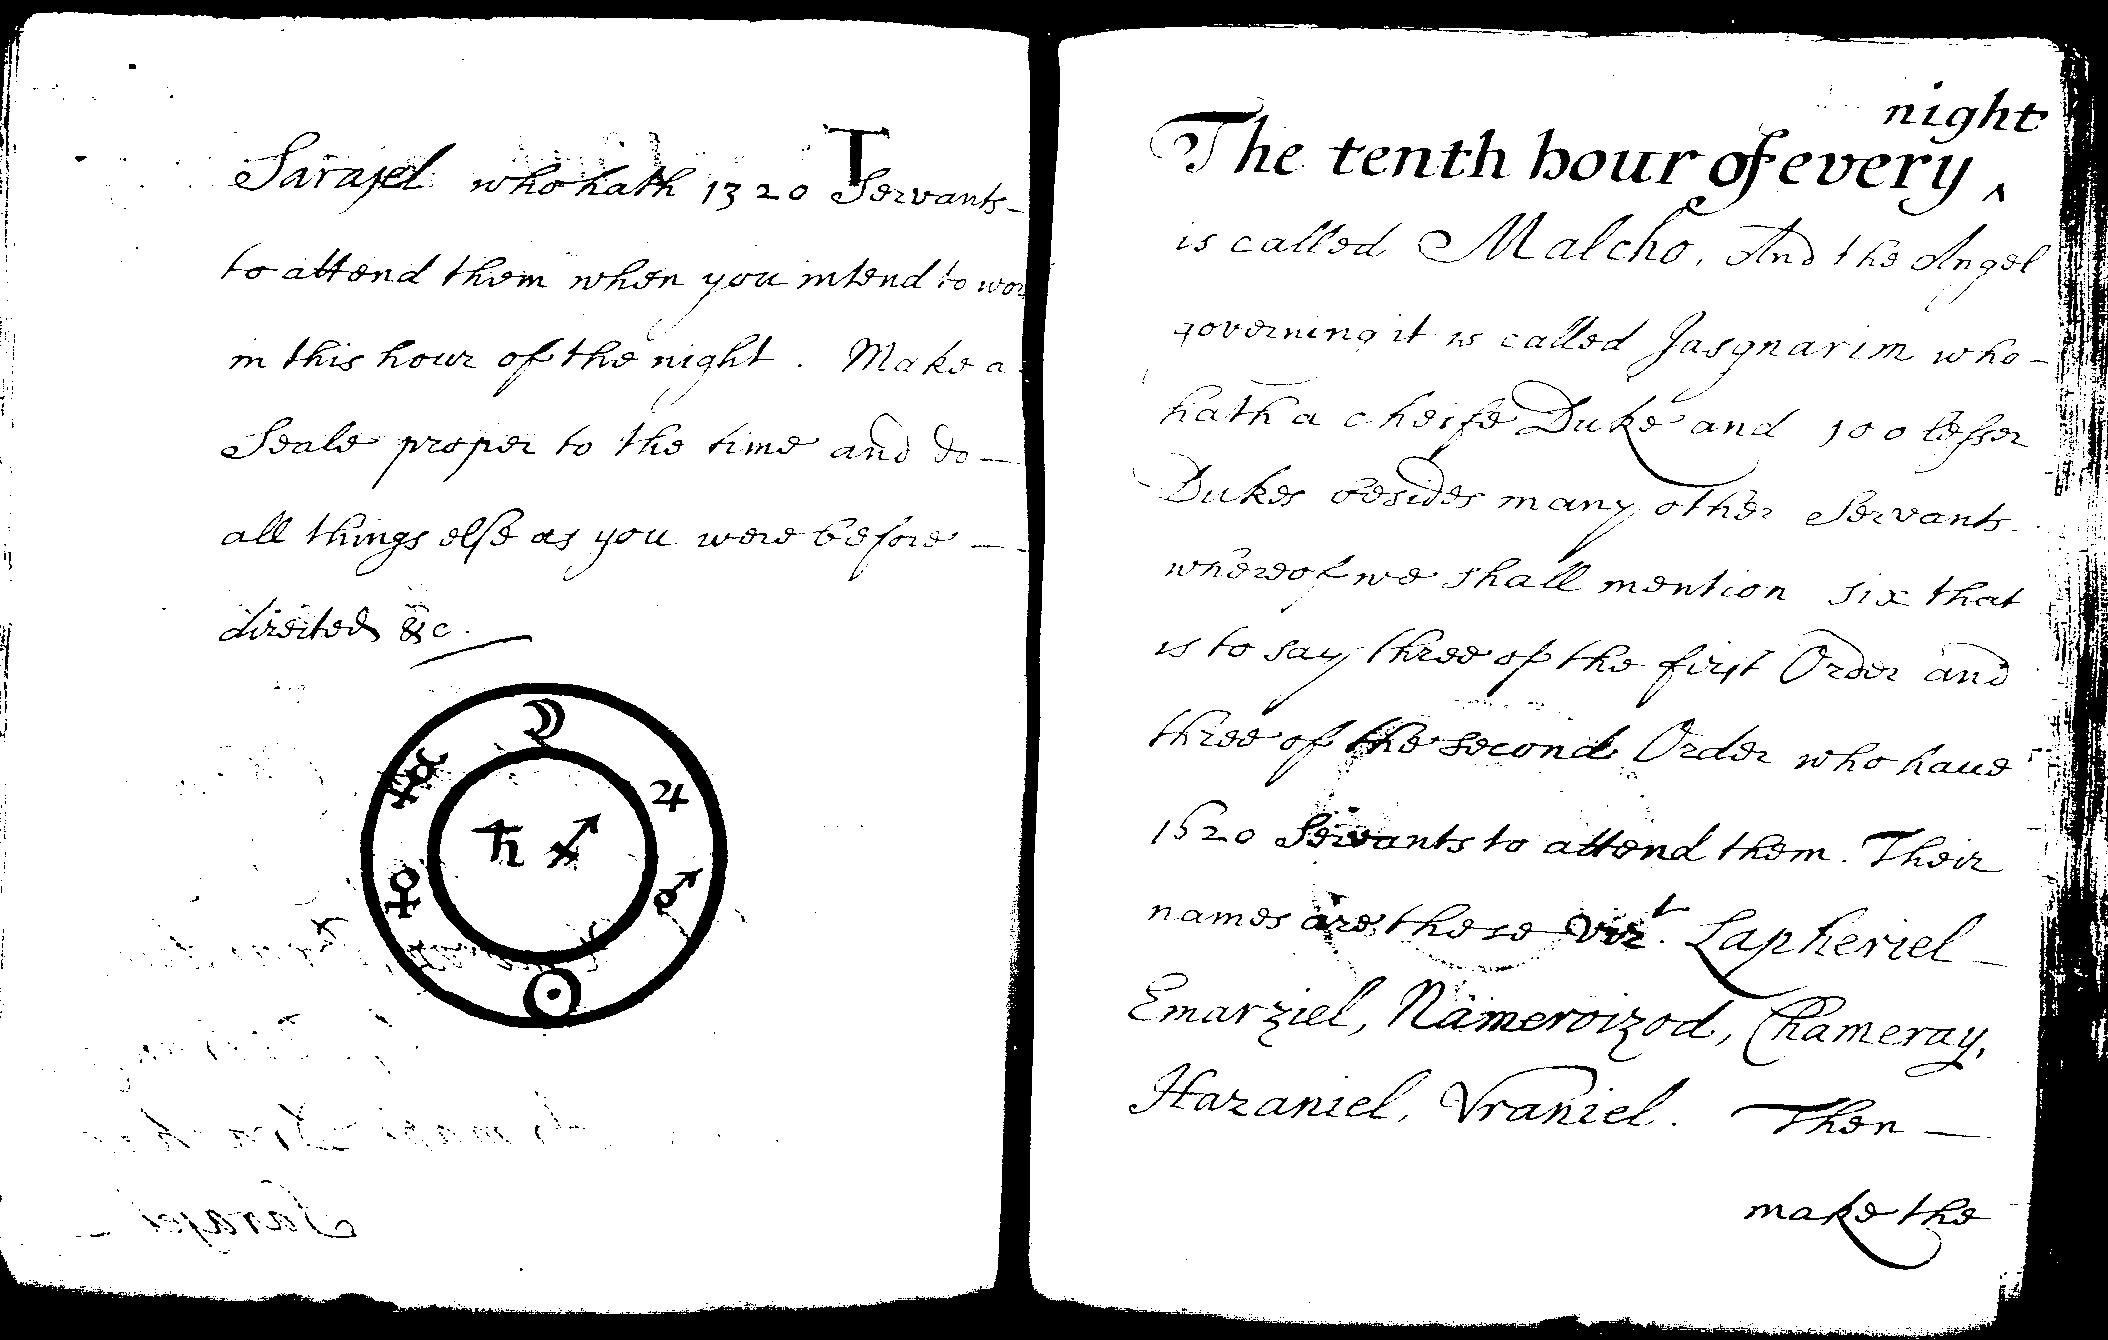 Sarajel who hath 1320 Servants
to attend them when you intend to wor
in this hour of the night. Make a
Seale proper to the time and do
all things else as you were before
directed &c.
night
The tenth hour of every ^
is called Malcho, And the Angel
governing it is called Jasgnarim who
hath a cheife Duke and 100 lesser
Dukes besides many other Servants
whereof we shall mention six that
is to say three of the first Order and
three of the second Order who haue
1620 Servants to attend them. Their
names are these vizt. Lapheriel
Emarziel, Nameroizod, Chameray,
Hazaniel, Vraniel. Then
make the